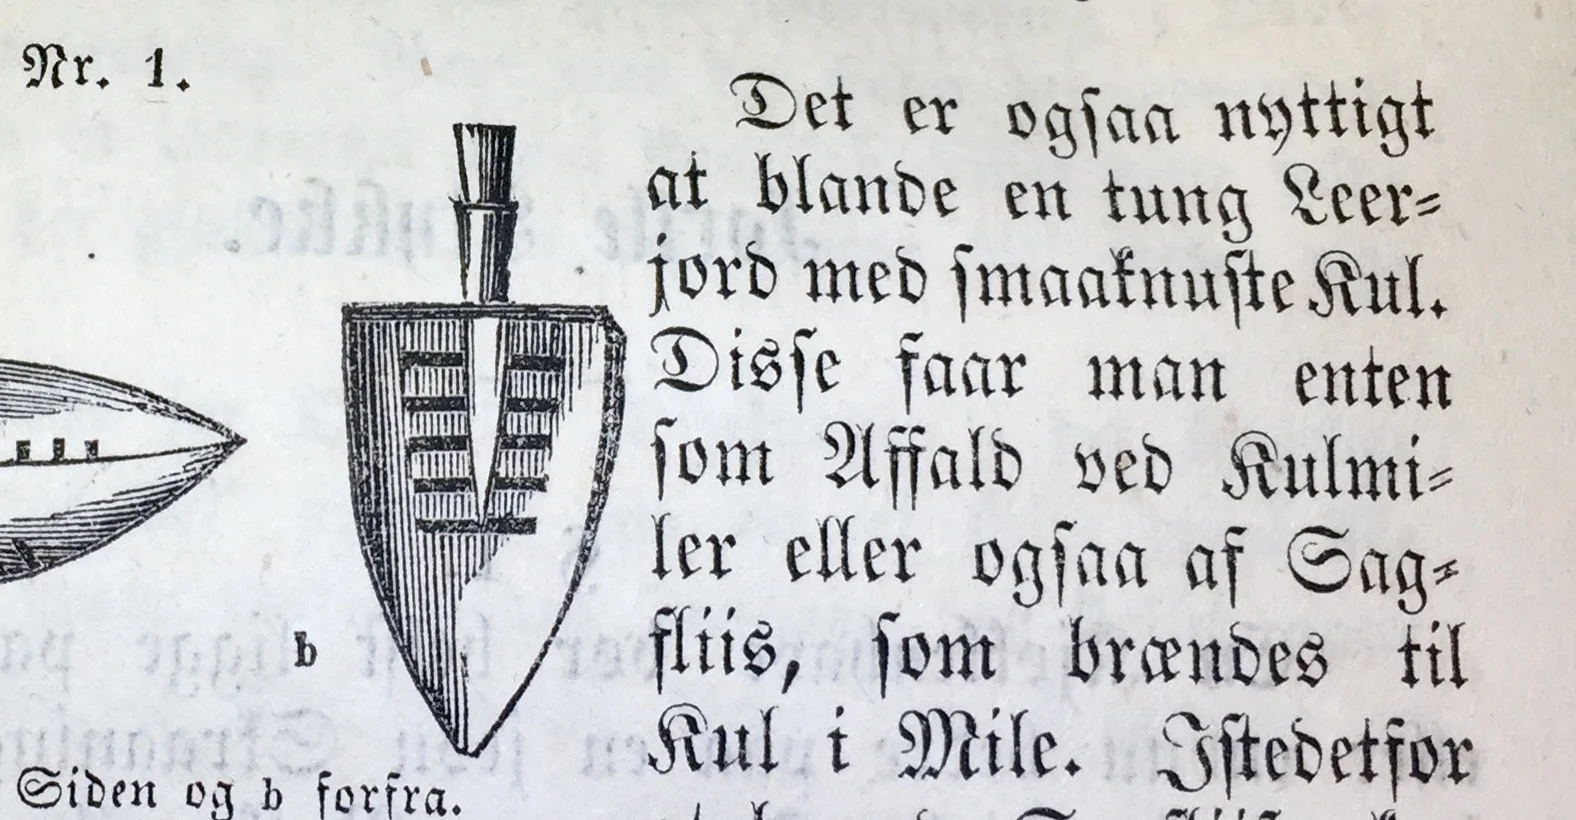 Nr. 1.
Det er ogsaa nyttigt
at blande en tung Leer-
jord med smaaknuste Kul.
Disse faar man enten
som Affald ved Kulmi-
ler eller ogsaa af Sag-
fliis, som brændes til
Kul i Mile. Istedetfor
b
Siden og b forfra.